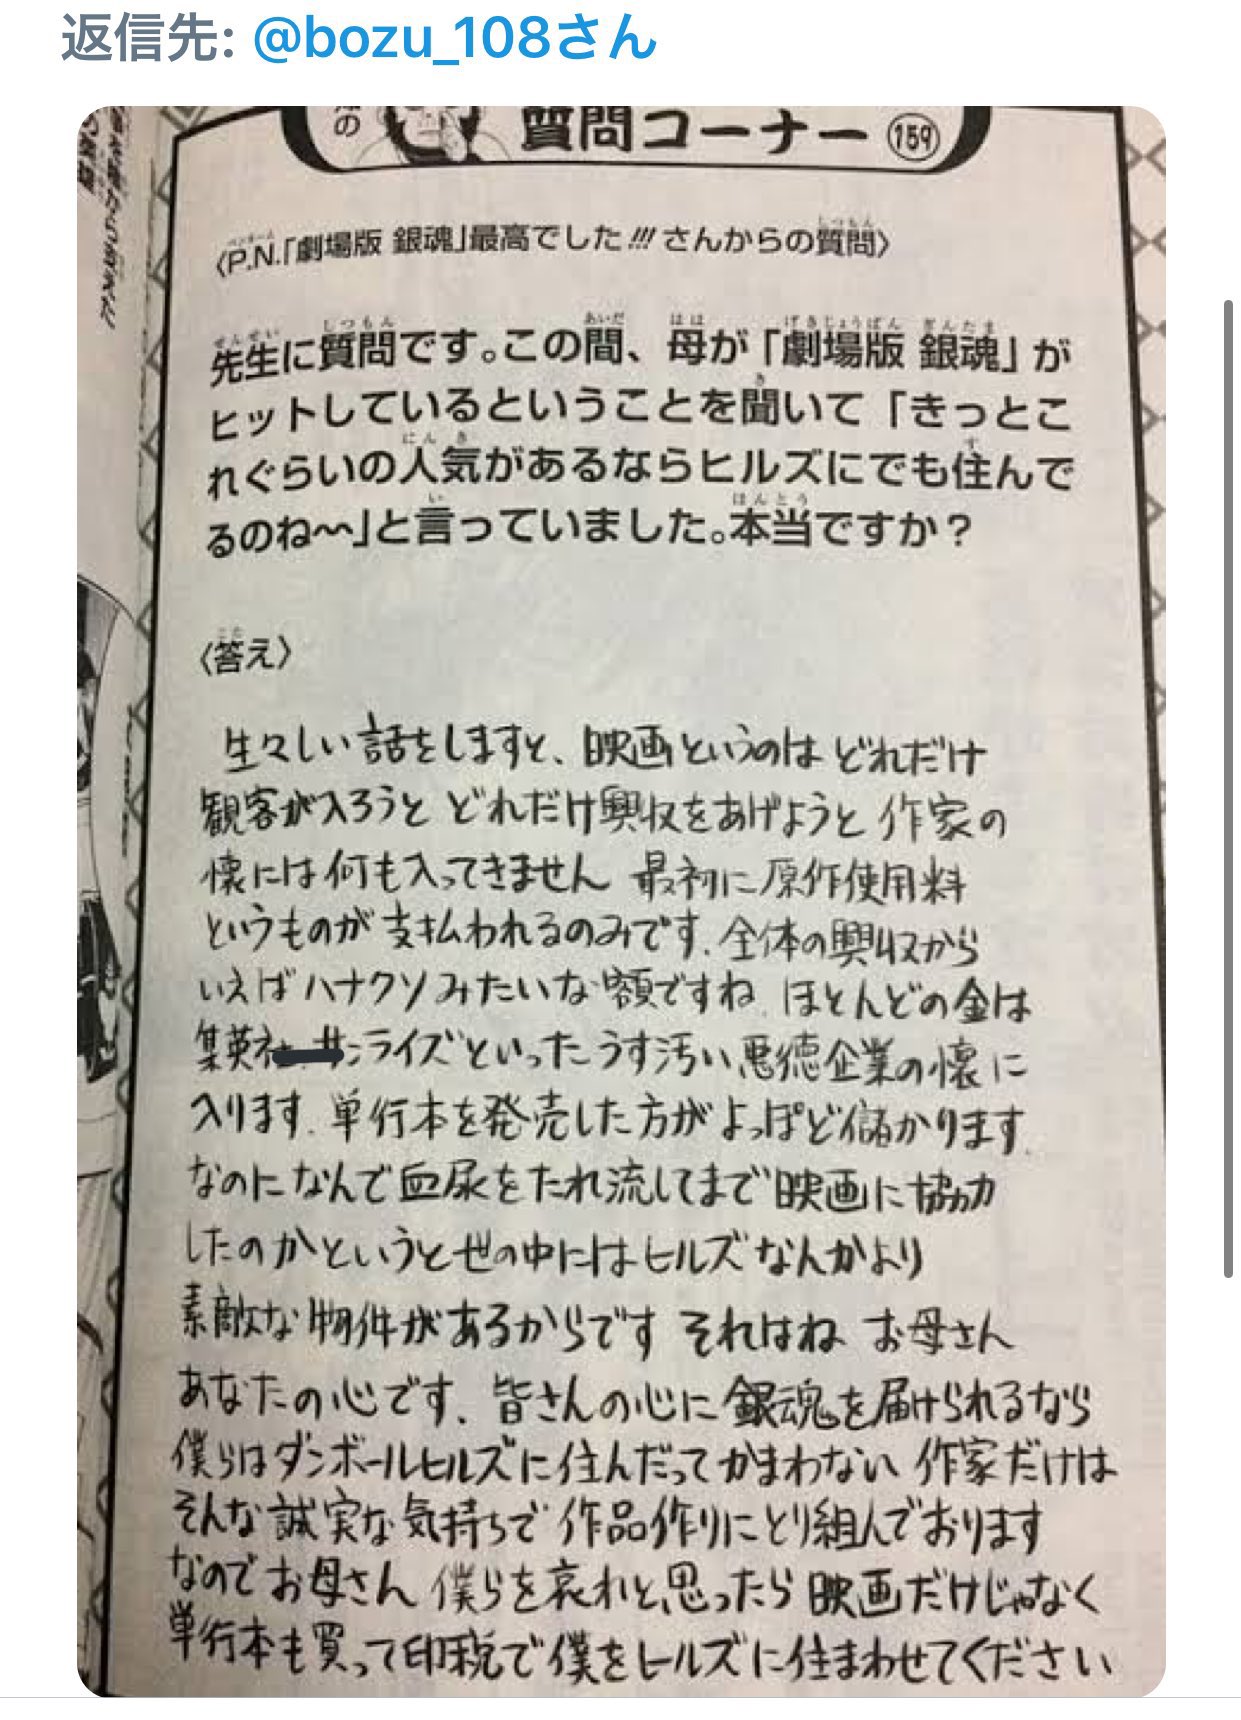 返信先: @bozu_108さん
の
質問コーナー 159
〈P.N.「劇場版 銀魂」最高でした!!! さんからの質問〉
先生に質問です。この間、母が「劇場版 銀魂」が
ヒットしているということを聞いて「きっとこ
れぐらいの人気があるならヒルズにでも住んで
るのね〜〜」と言っていました。本当ですか?
〈答え〉
生々しい話をしますと、映画というのは どれだけ
観客が入ろうと どれだけ興収をあげようと 作家の
懐には何も入ってきません 最初に原作使用料
というものが支払われるのみです、全体の興収から
いえばハナクソみたいな額ですね ほとんどの金は
集英社 サンライズといったうす汚い悪徳企業の懐に
入ります. 単行本を発売した方がよっぽど儲かります.
なのになんで血尿をたれ流してまで映画に協力
したのかというと世の中にはヒルズなんかより
素敵な物件があるからです それはね お母さん
あなたの心です、皆さんの心に銀魂を届けられるなら
僕らはダンボールヒルズに住んだってかまわない 作家だけは
そんな誠実な気持ちで作品作りにとり組んでおります
なのでお母さん 僕らを哀れと思ったら映画だけじゃなく
単行本も買って印税で僕をヒルズに住まわせてください